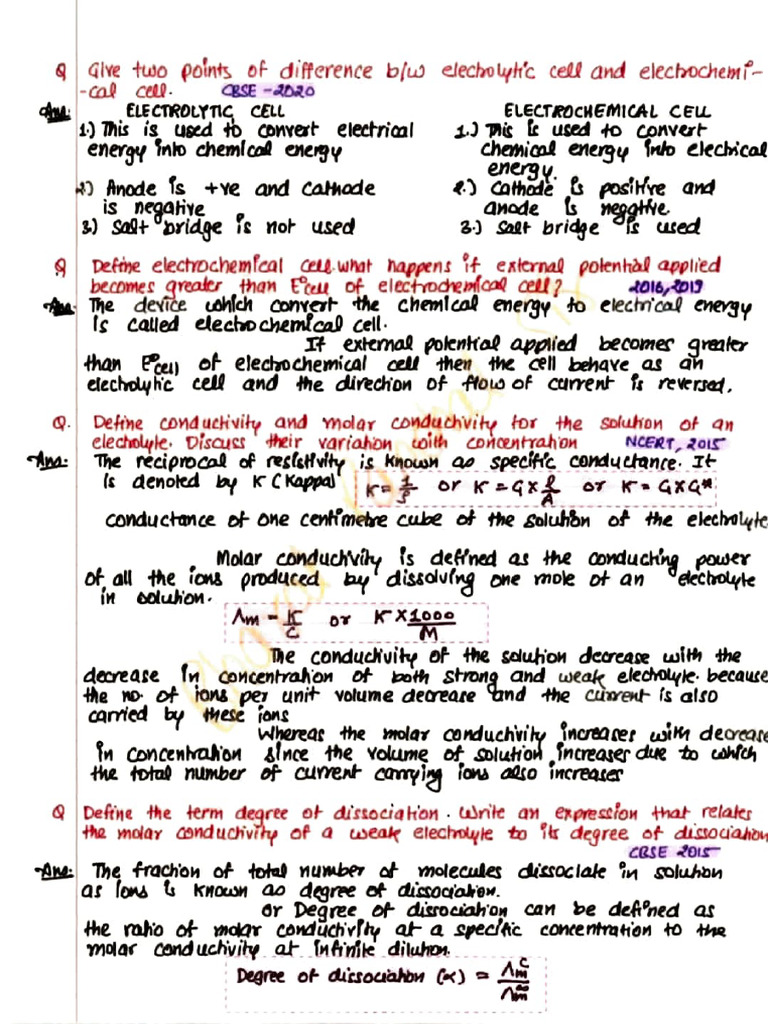 Q Give two points of difference b/w electrolytic cell and electrochemi-
-cal cell. CBSE -2020
Ans: ELECTROLYTIC CELL ELECTROCHEMICAL CELL
1.) This is used to convert electrical 1.) This is used to convert
energy into chemical energy chemical energy into electrical
energy.
2) Anode is +ve and cathode 2.) cathode is positive and
is negative anode is negative.
3.) salt bridge is not used 3.) salt bridge is used
Q Define electrochemical cell. what happens if external potential applied
becomes greater than E°cell of electrochemical cell? 2016, 2019
Ans: The device which convert the chemical energy to electrical energy
is called electrochemical cell.
If external potential applied becomes greater
than E°cell of electrochemical cell then the cell behave as an
electrolytic cell and the direction of flow of current is reversed.
Q. Define conductivity and molar conductivity for the solution of an
electrolyte. Discuss their variation with concentration NCERT, 2015
Ans: The reciprocal of resistivity is known as specific conductance. It
is denoted by K (Kappa) K = 1/ρ or K = G × l/A or K = G × G*
conductance of one centimetre cube of the solution of the electrolyte
Molar conductivity is defined as the conducting power
of all the ions produced by dissolving one mole of an electrolyte
in solution.
Λm = K/C or K × 1000/M
The conductivity of the solution decrease with the
decrease in concentration of both strong and weak electrolyte. because
the no. of ions per unit volume decrease and the current is also
carried by these ions
Whereas the molar conductivity increases with decrease
in concentration since the volume of solution increases due to which
the total number of current carrying ions also increases
Q Define the term degree of dissociation. Write an expression that relates
the molar conductivity of a weak electrolyte to its degree of dissociation
CBSE 2015
Ans: The fraction of total number of molecules dissociate in solution
as ions is known as degree of dissociation.
or Degree of dissociation can be defined as
the ratio of molar conductivity at a specific concentration to the
molar conductivity at infinite dilution.
Degree of dissociation (α) = Λm^c/Λm^∞